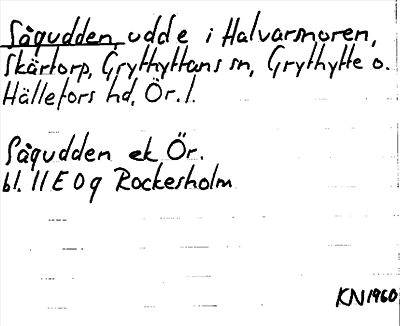 Sågudden, udde i Halvarsnoren,
Skärtorp, Grythyttans sn, Grythytte o.
Hällefors hd, Ör. l.
Sågudden ek Ör.
bl. 11 E 0 g Rockesholm
KN 1960